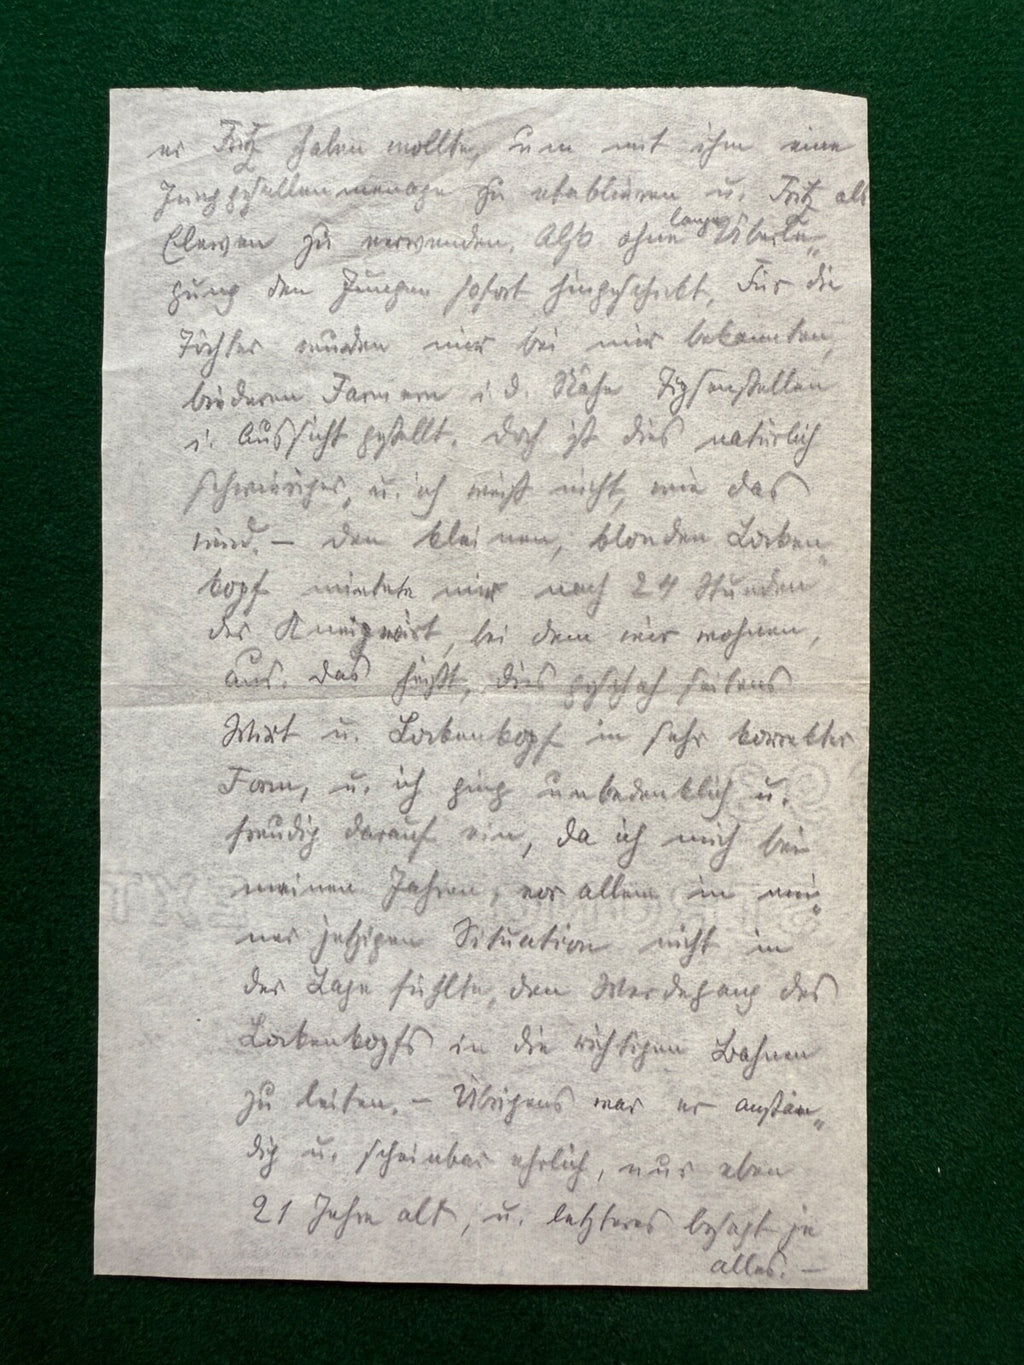 er Fritz haben wollte, um mit ihm eine
Junggesellenmenage zu etablieren u. Fritz als
Eleven zu verwenden. Also ohne lange Überle„
gung den Jungen sofort hingeschickt. Für die
Töchter wurden mir bei mir bekannten,
biederen Farmern i. d. Nähe
i. Aussicht gestellt. Doch ist dies natürlich
schwieriger, u. ich weiß nicht, wie das
wird. — Den kleinen, blonden Locken„
kopf mietete mir nach 24 Stunden
der Kneipwirt, bei dem wir wohnen,
aus. Das heißt, dies geschah seitens
Wirt u. Lockenkopf in sehr korrekter
Form, u. ich ging unbedenklich u.
freudig darauf ein, da ich mich bei
meinen Jahren, vor allem in mei„
ner jetzigen Situation nicht in
der Lage fühlte, den Werdegang des
Lockenkopfs in die richtigen Bahnen
zu leiten. — Übrigens war er anstän„
dig u. scheinbar ehrlich, nur eben
21 Jahre alt, u. letzteres besagt ja
alles. —